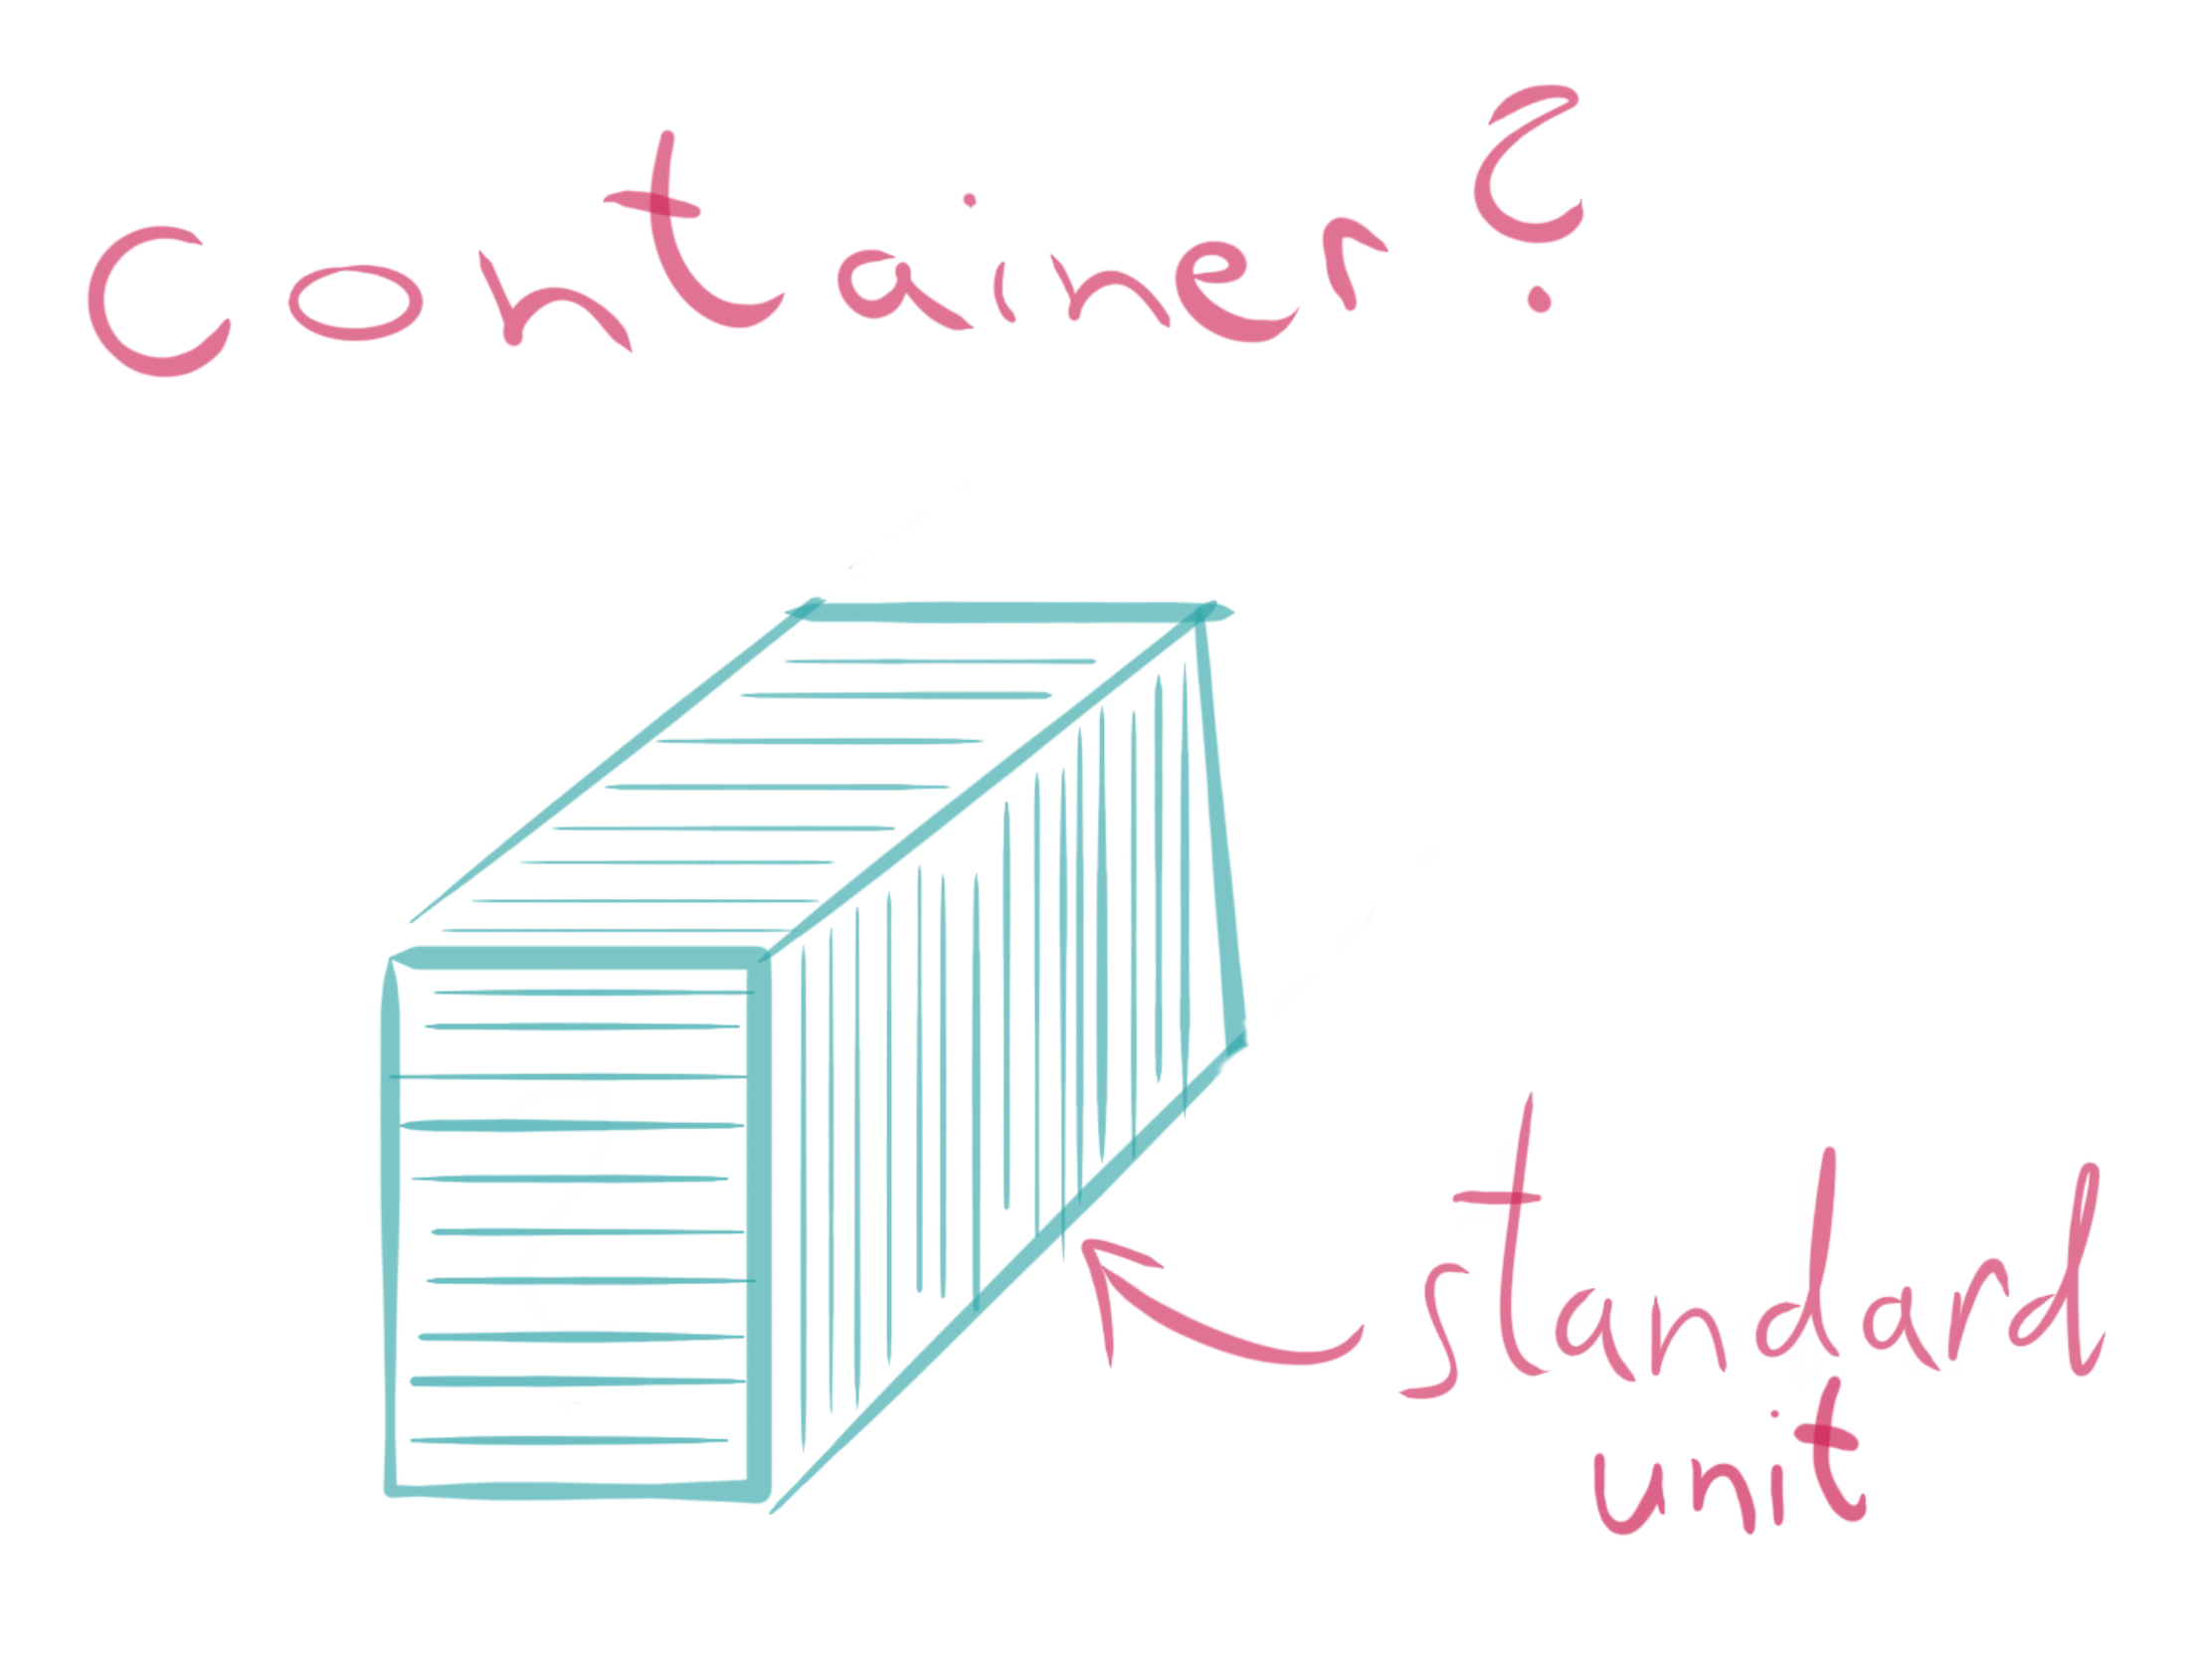 Container?
standard
unit